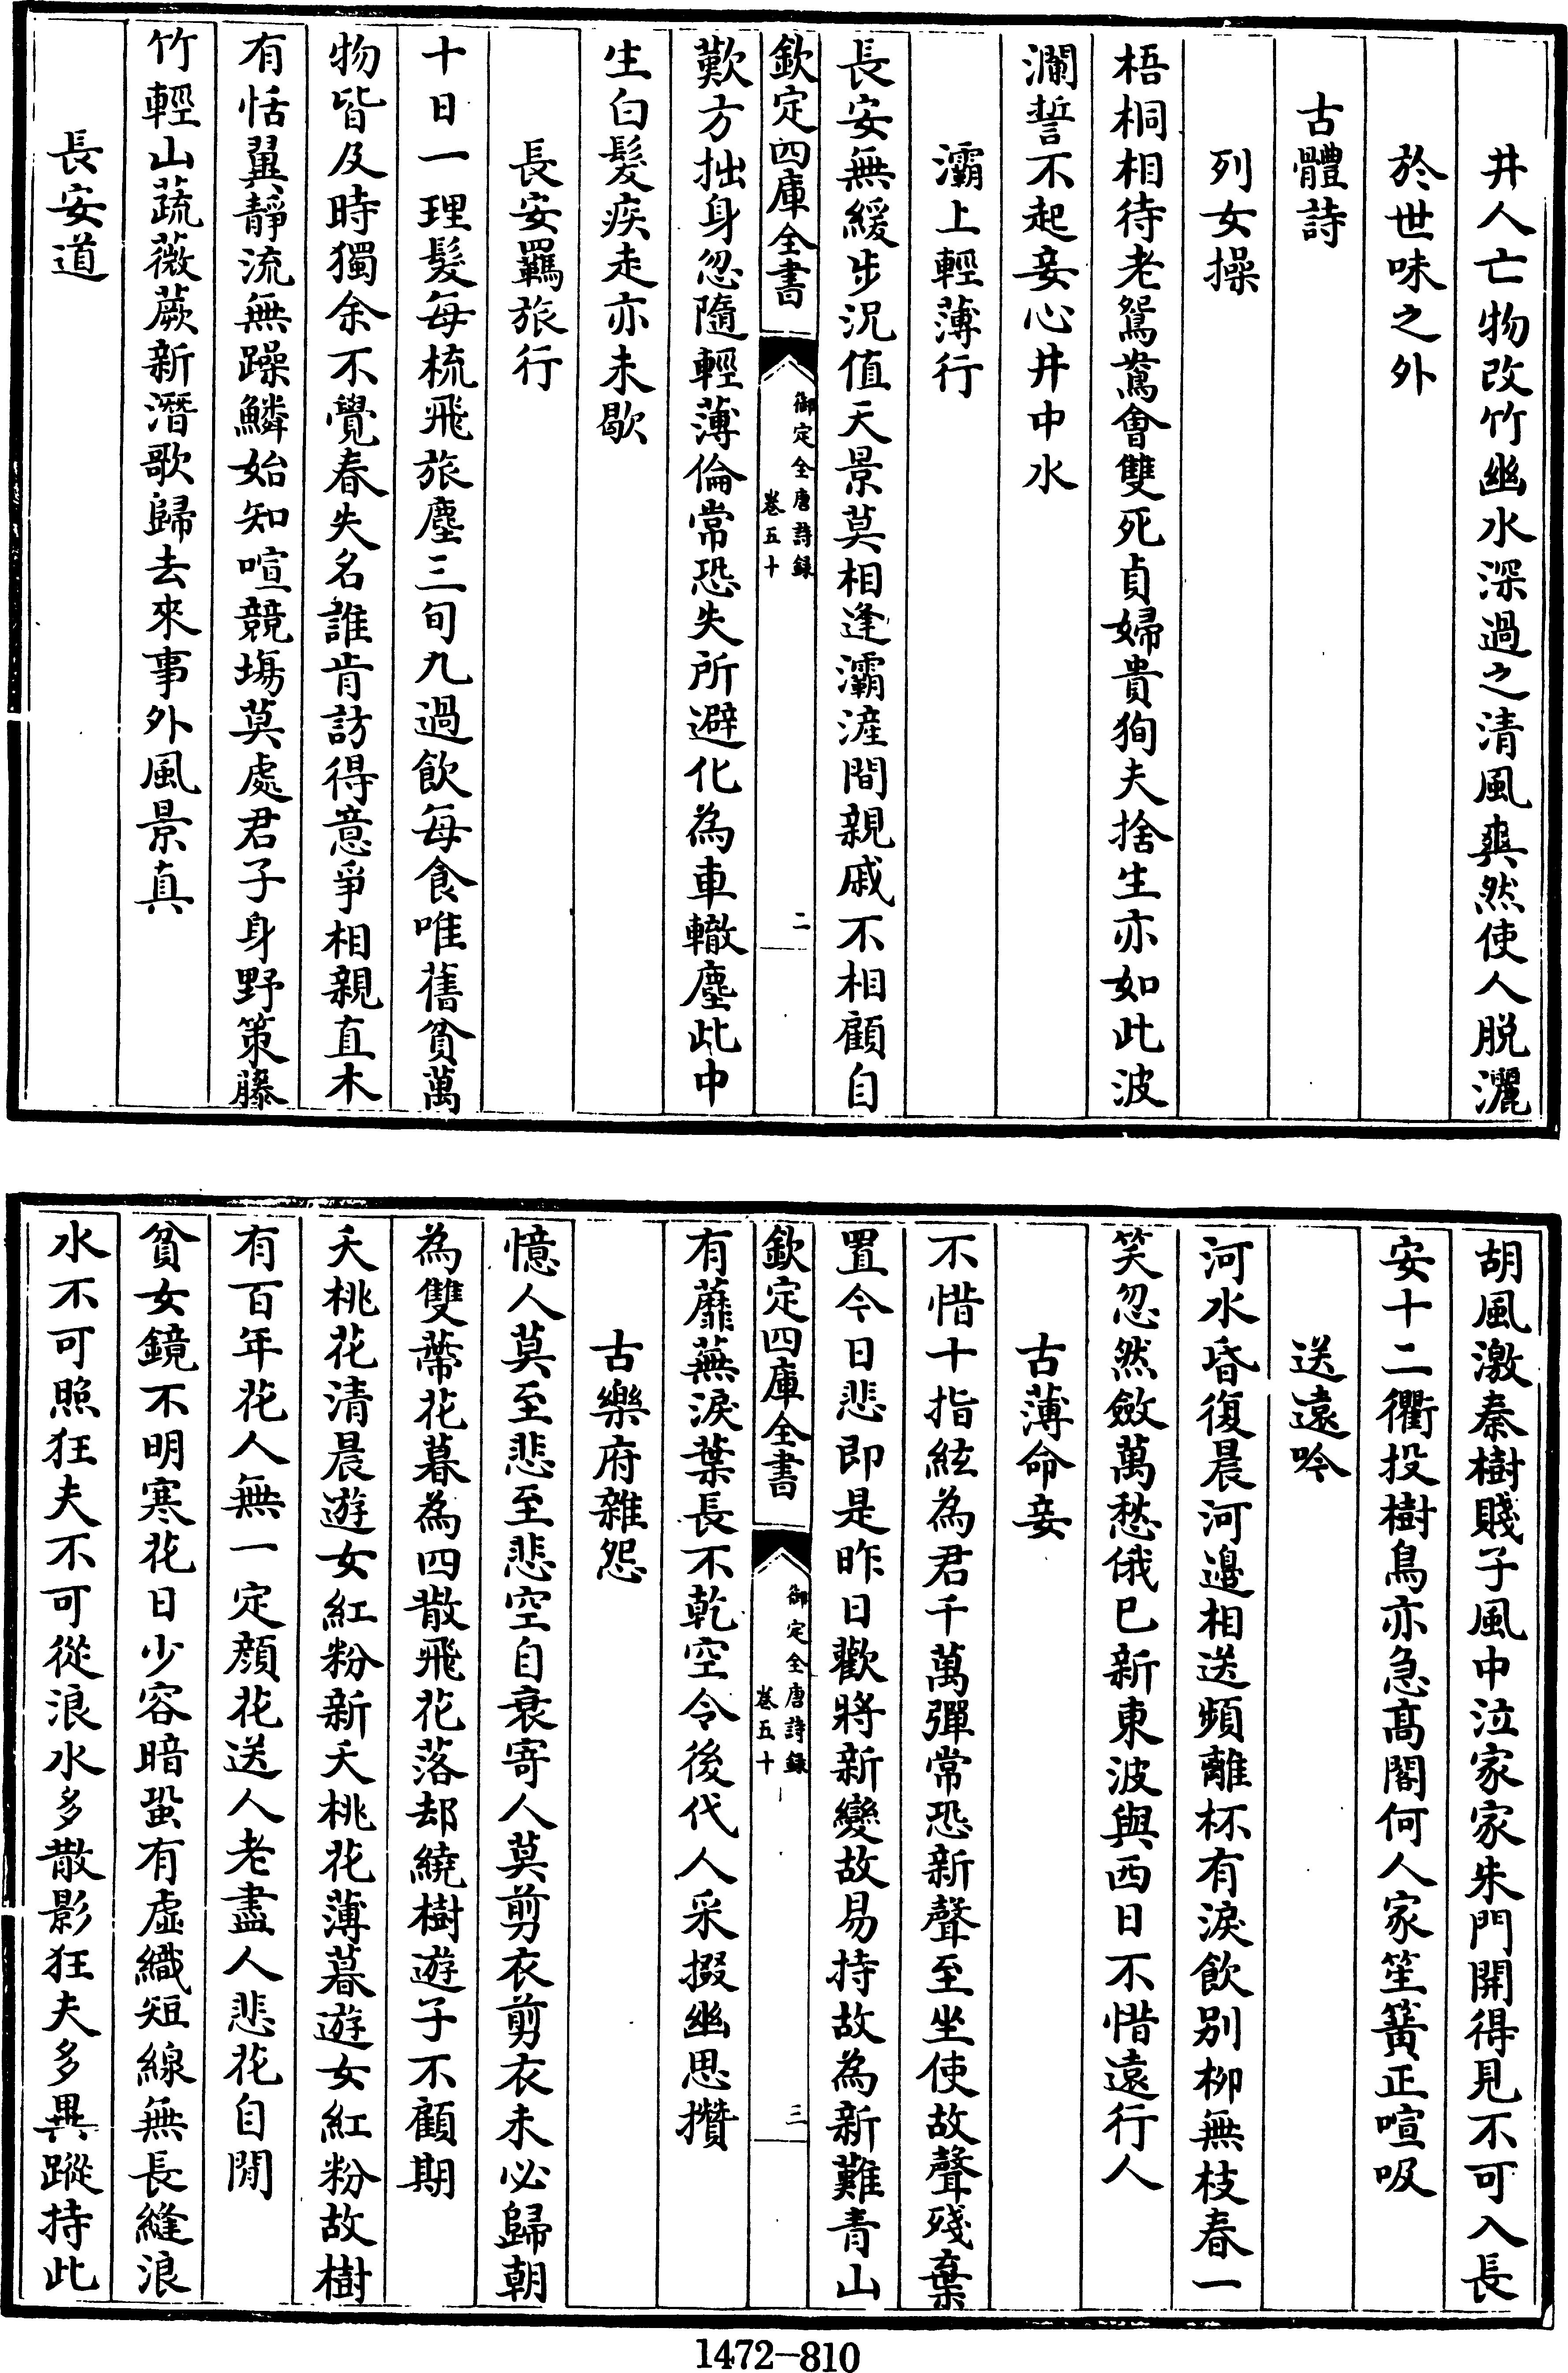 井人亡物改竹幽水深過之清風爽然使人脱灑
於世味之外
古體詩
列女操
梧桐相待老鴛鴦㑹雙死貞婦貴狥夫捨生亦如此波
瀾誓不起妾心井中水
灞上輕薄行
長安無緩步況值天景莫相逢灞滻間親戚不相顧自
欽定四庫全書
御定全唐詩録
卷五十
二
歎方拙身忽隨輕薄倫常恐失所避化為車轍塵此中
生白髮疾走亦未歇
長安羈旅行
十日一理髮每梳飛旅塵三旬九過飲每食唯舊貧萬
物皆及時獨余不覺春失名誰肯訪得意爭相親直木
有恬翼靜流無躁鱗始知喧競塲莫處君子身野策藤
竹輕山蔬薇蕨新潛歌歸去來事外風景真
長安道
胡風激秦樹賤子風中泣家家朱門開得見不可入長
安十二衢投樹鳥亦急髙閣何人家笙簧正喧吸
送遠吟
河水昏復晨河邊相送頻離杯有淚飲别柳無枝春一
笑忽然斂萬愁俄已新東波與西日不惜遠行人
古薄命妾
不惜十指絃為君千萬彈常恐新聲至坐使故聲殘棄
置今日悲即是昨日歡將新變故易持故為新難青山
欽定四庫全書
御定全唐詩録
卷五十
三
有蘼蕪淚葉長不乾空令後代人采掇幽思攢
古樂府雜怨
憶人莫至悲至悲空自衰寄人莫剪衣剪衣未必歸朝
為雙蔕花暮為四散飛花落却繞樹遊子不顧期
夭桃花清晨遊女紅粉新夭桃花薄暮遊女紅粉故樹
有百年花人無一定顔花送人老盡人悲花自閒
貧女鏡不明寒花日少容暗蛩有虚織短線無長縫浪
水不可照狂夫不可從浪水多散影狂夫多異蹤持此
1472-810